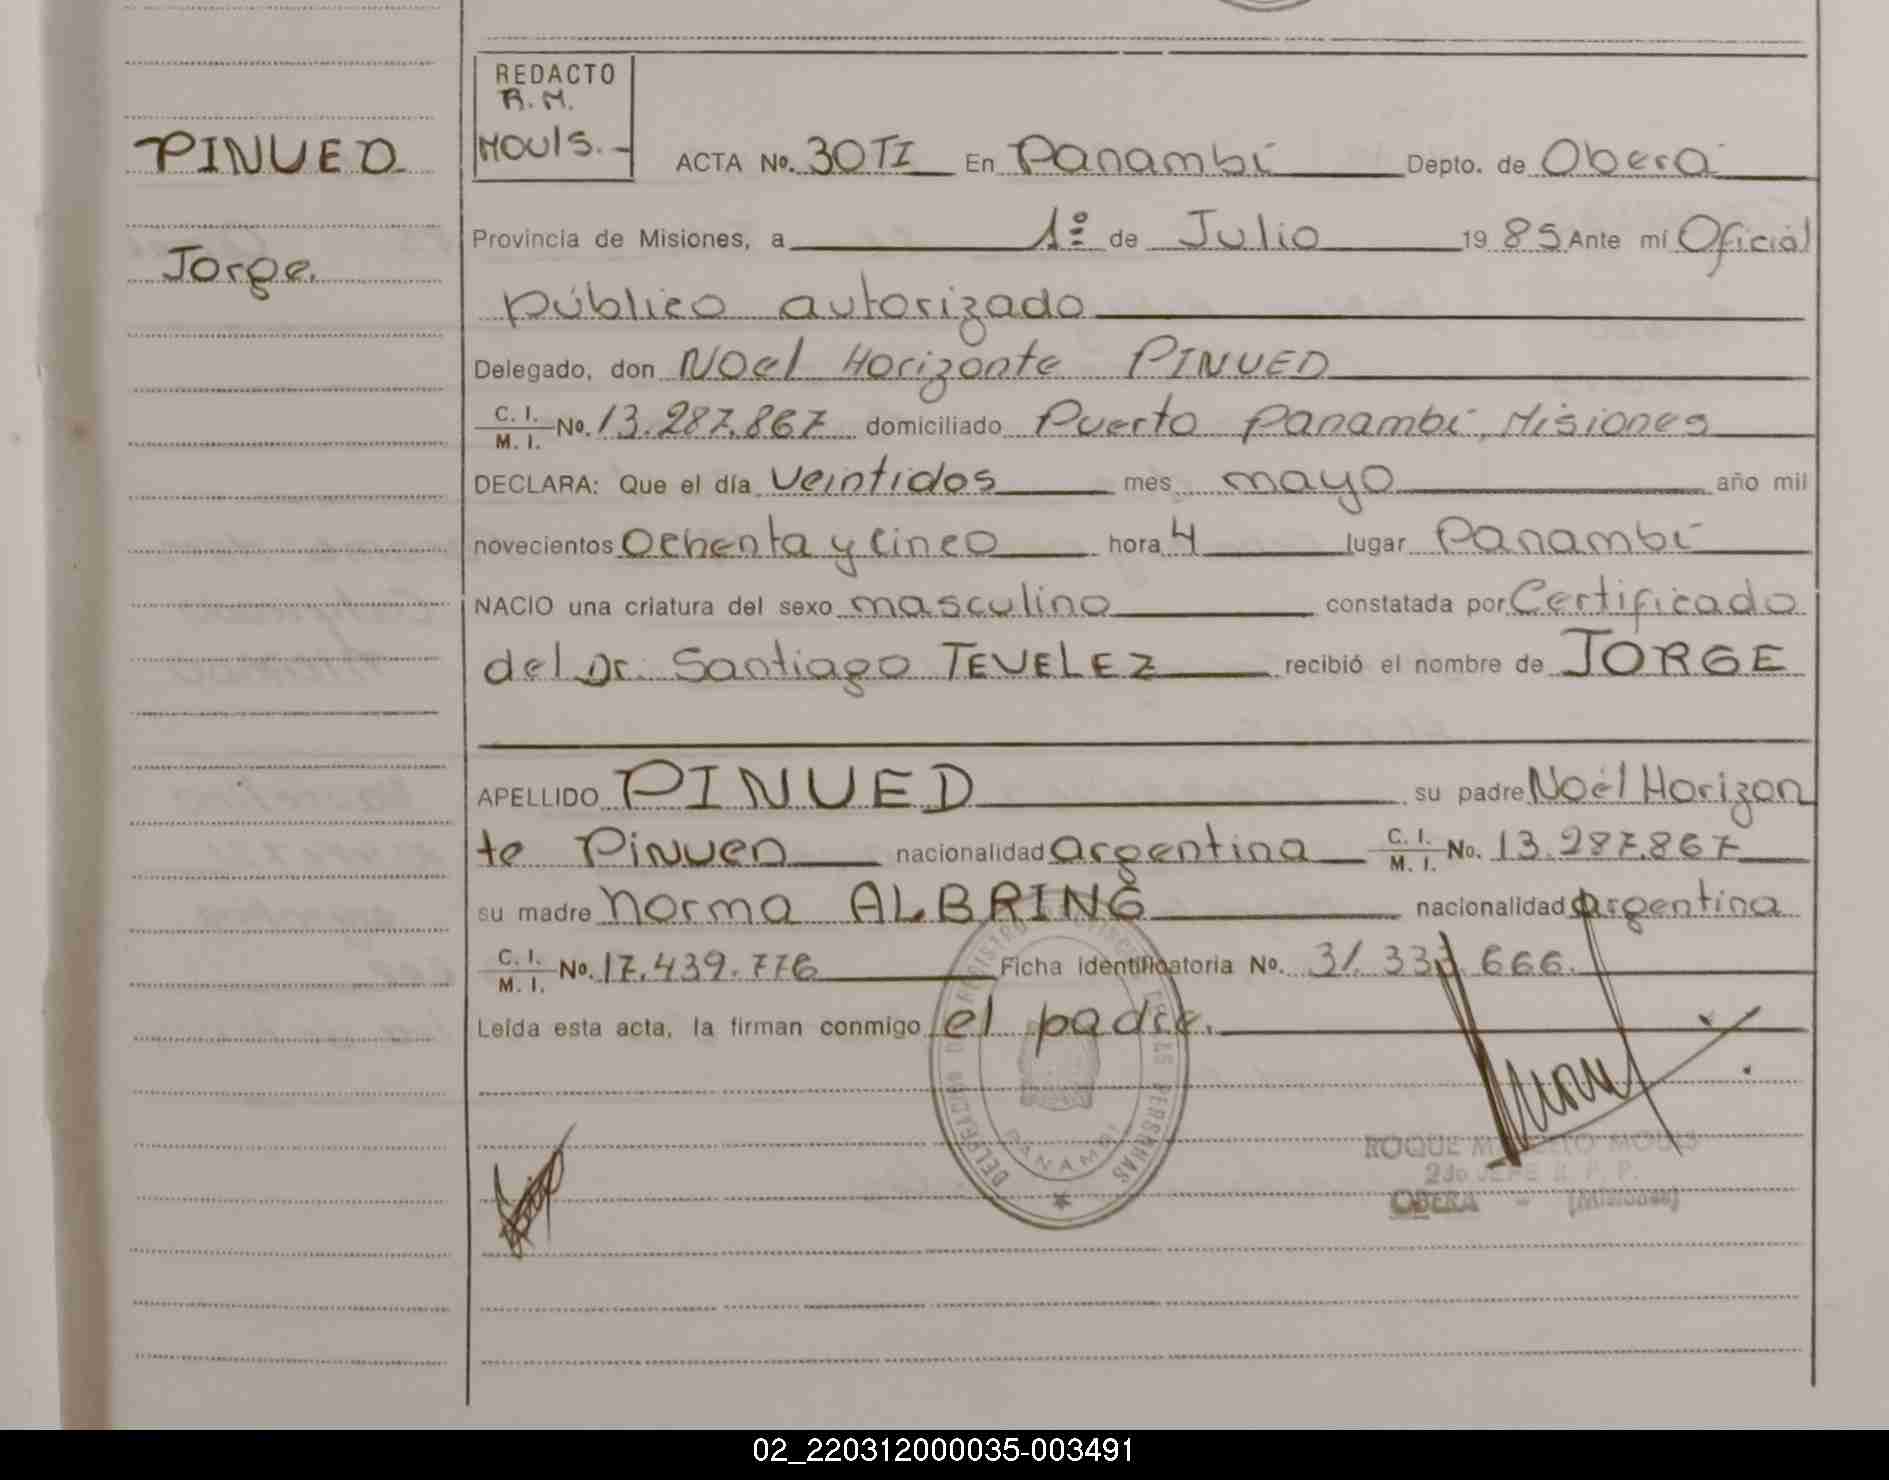 REDACTO
R.M.
MOUIS.-
PINUED
Jorge.
ACTA No. 30 TI En Panambí Depto. de Oberá
Provincia de Misiones, a 1º de Julio 1985 Ante mí Oficial
público autorizado
Delegado, don Noel Horizonte PINUED
C. I. M. I. No. 13.287.867 domiciliado Puerto Panambí, Misiones
DECLARA: Que el día veintidos mes mayo año mil
novecientos ochenta y cinco hora 4 lugar Panambí
NACIO una criatura del sexo masculino constatada por Certificado
del Dr. Santiago TEVELEZ recibió el nombre de JORGE
APELLIDO PINUED su padre Noél Horizon
te Pinued nacionalidad argentina C. I. M. I. No. 13.287.867
su madre Norma ALBRING nacionalidad argentina
C. I. M. I. No. 17.439.776 Ficha identificatoria No. 31.33 666.
Leída esta acta, la firman conmigo el padre.
PANAMBI
ROQUE MOUIS
2do JEFE R. P. P.
OBERA - (Misiones)
02_220312000035-003491